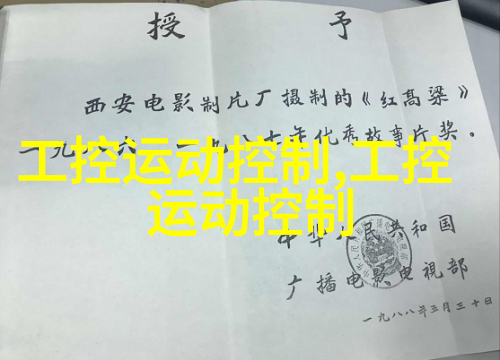 授 予
西安电影制片厂摄制的《红高粱》
一九八六 一九八七年优秀故事片奖。
工控运动控制,工控
运动控制
中华人民共和国
广播电影电视部
一九八八年三月三十日